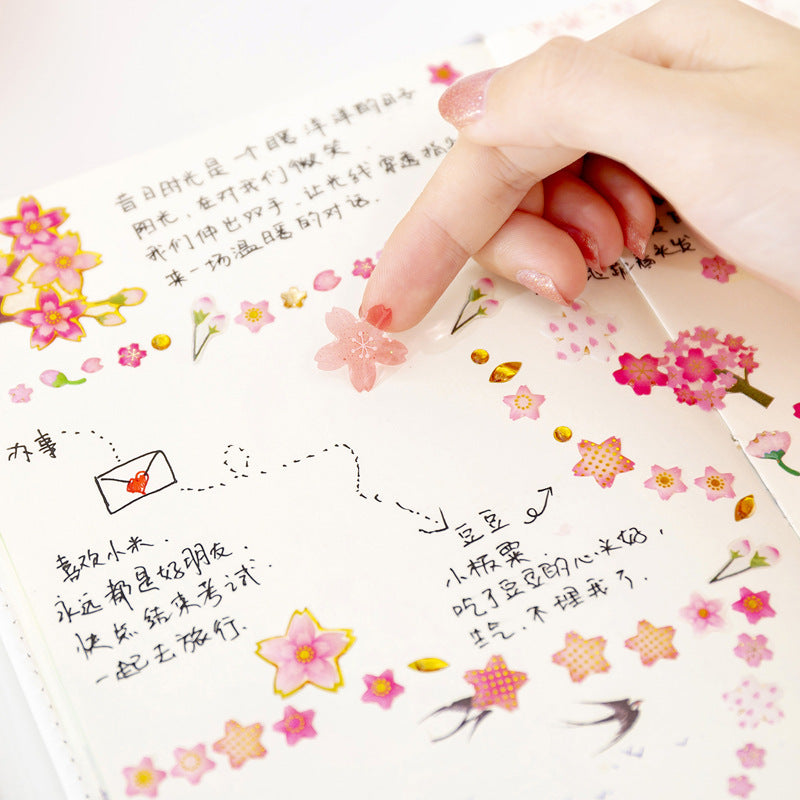 昔日时光是一个暖洋洋的日子
阳光，在对我们微笑．
我们伸出双手，让光线穿透指尖
来一场温暖的对话．
办事
喜欢小米．
永远都是好朋友．
快点结束考试．
一起去旅行．
豆豆
小板栗．
吃了豆豆的心米好，
生气，不理我了．